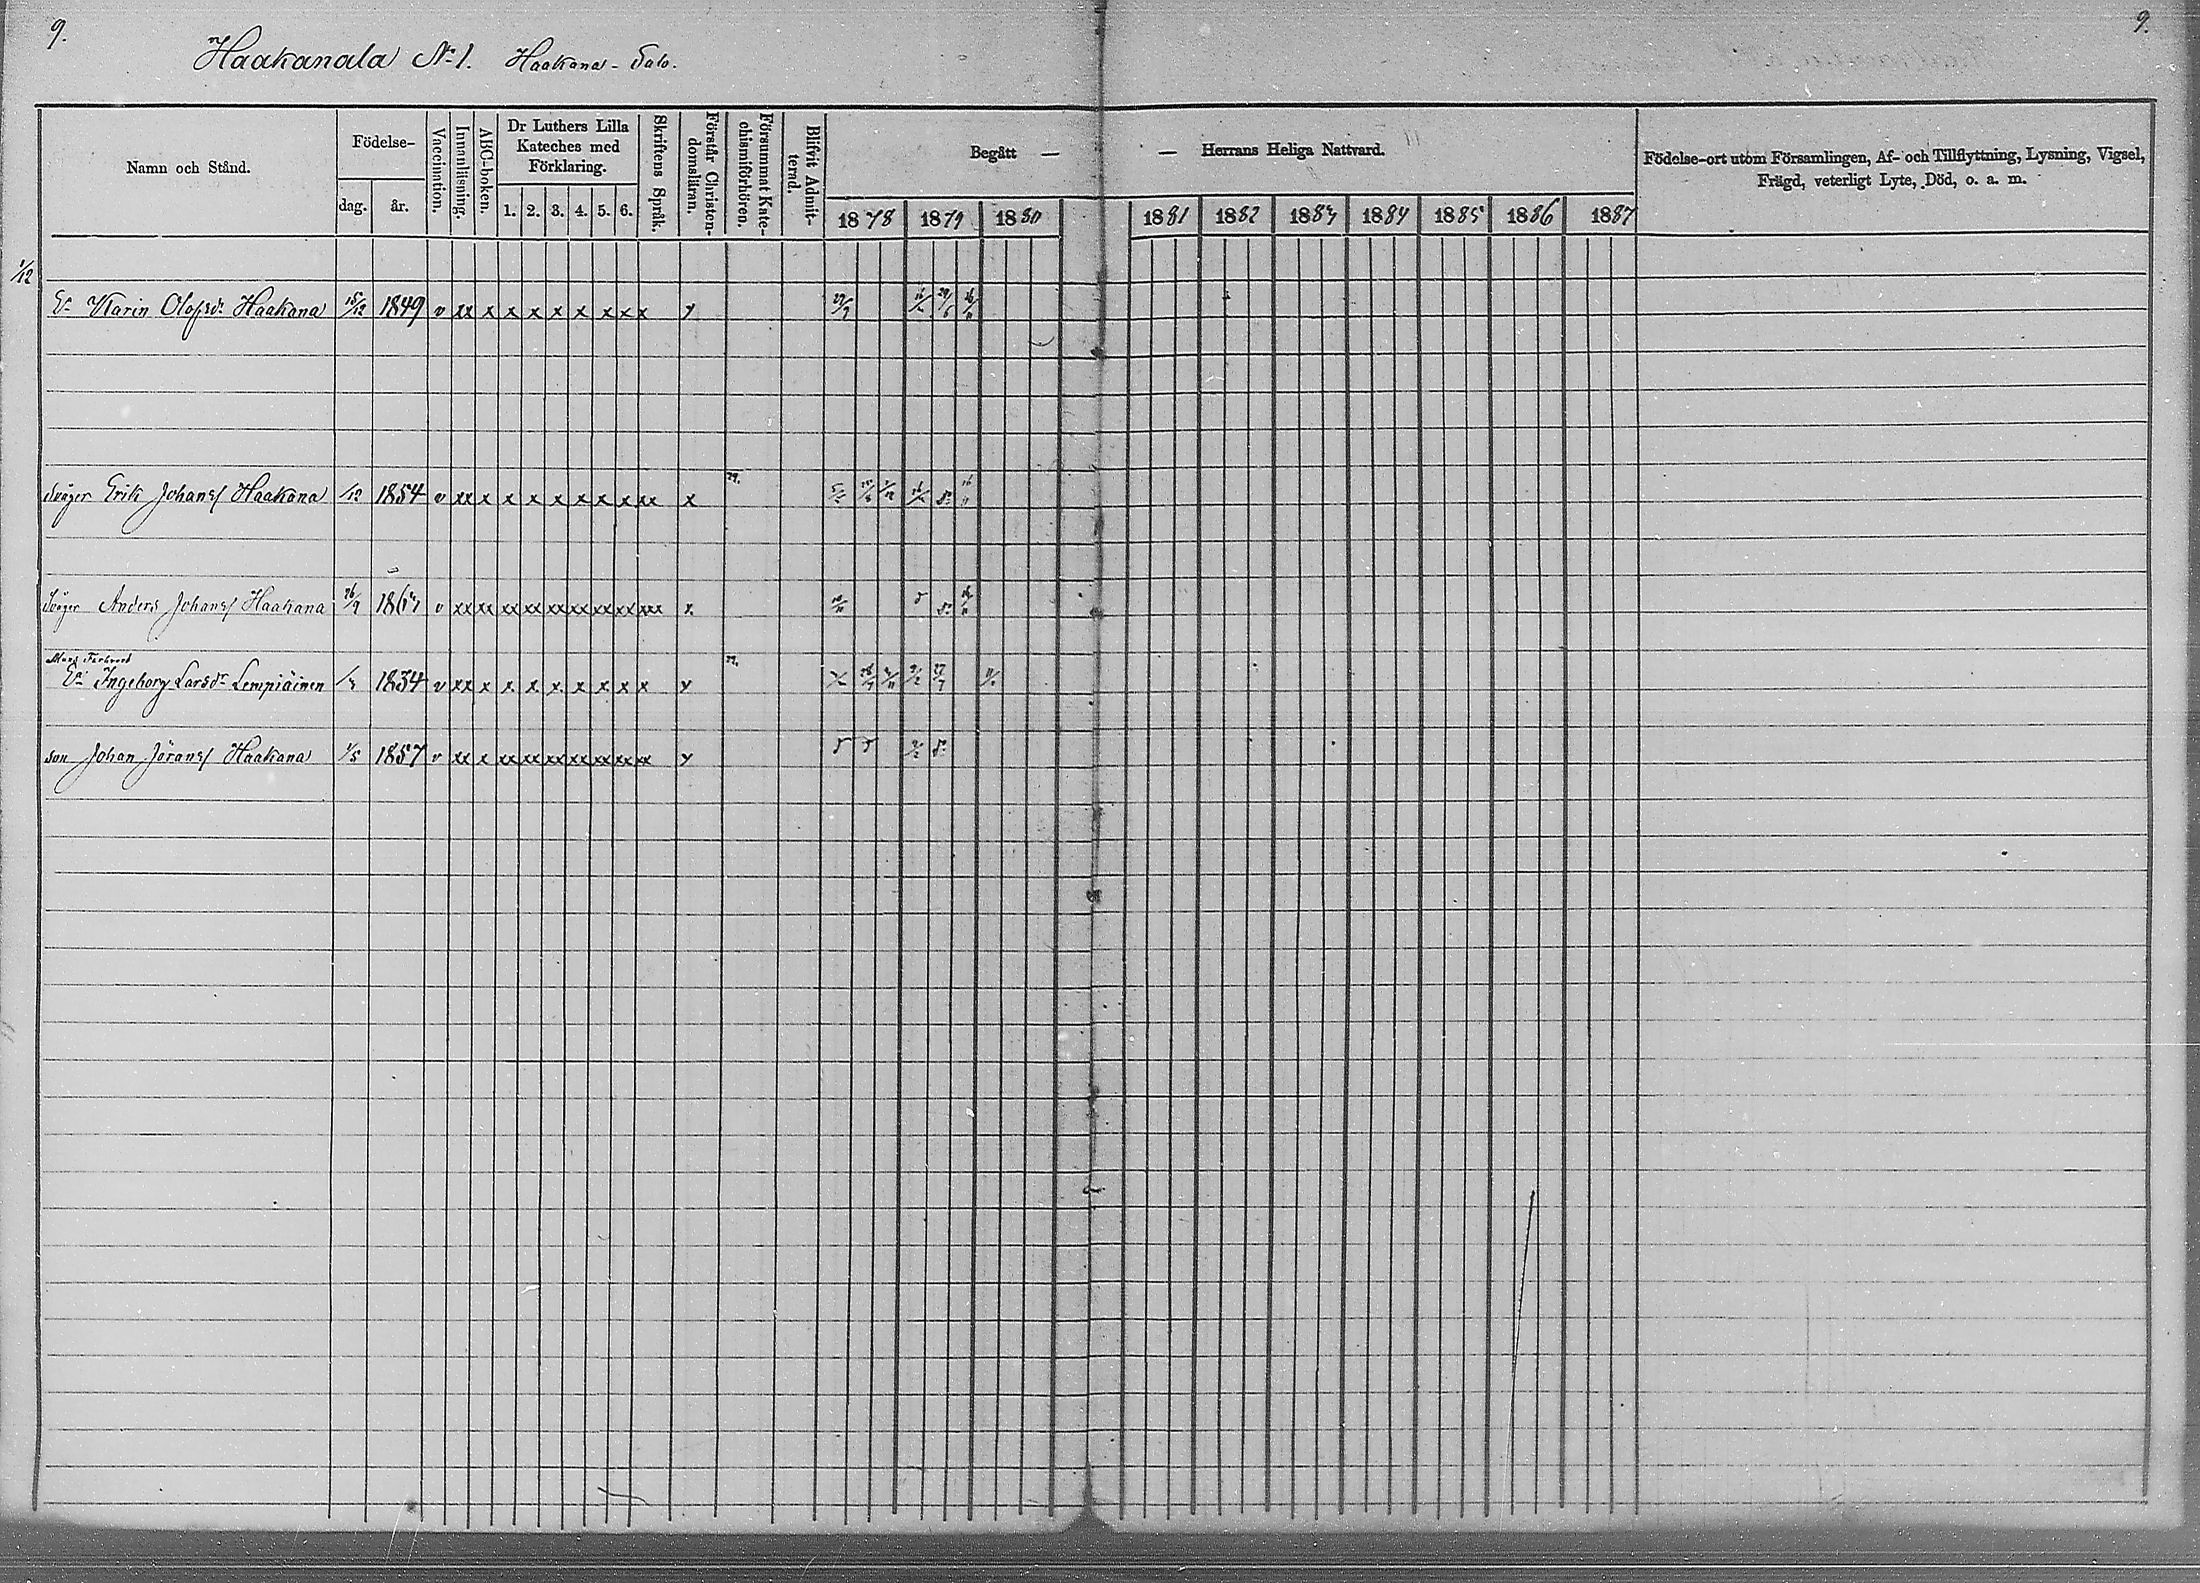 9.
9.
Haakanala No 1. Haakana-Salo.
Namn och Stånd.
Födelse-
dag.
år.
Vaccination.
Innanläsning.
ABC-boken.
Dr Luthers Lilla
Kateches med
Förklaring.
1. 2. 3. 4. 5. 6.
Skriftens Språk.
Förstår Christen-
domsläran.
Försummat Kate-
chismiförhören.
Blifvit Admit-
terad.
Begått — — Herrans Heliga Nattvard.
1878 1879 1880 1881 1882 1883 1884 1885 1886 1887
Födelse-ort utom Församlingen, Af- och Tillflyttning, Lysning, Vigsel,
Frägd, veterligt Lyte, Död, o. a. m.
1/12
Ea Karin Olofsdr Haakana 15/12 1849 v xx x x x x x x x x y
Svåger Erik Johanss Haakana /12 1854 v xx x x x x x x x xx x
Svåger Anders Johanss Haakana 26/9 v xx xx xx xx xx xx xx xx xxx x
Ea Ingeborg Larsdr Lempiäinen 1834 v xx x x x x x x x x y
son Johan Jöranss Haakana 1/5 1857 v xx x xx xx xx xx xx xx xx y